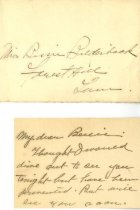 Miss Bessie
Forest Hill
Tenn.
My dear Bessie
Thought I would
drive out to see you
tonight but have been
prevented. But will
see you soon.